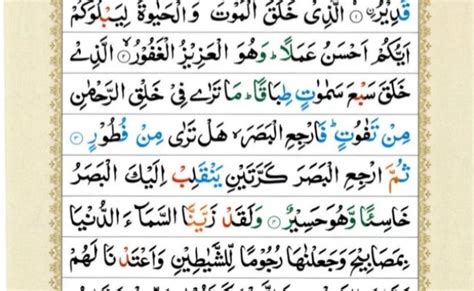 قَدِیْرُۨ ۙ﴿۱﴾ الَّذِیْ خَلَقَ الْمَوْتَ وَ الْحَیٰوةَ لِیَبْلُوَكُمْ
اَیُّكُمْ اَحْسَنُ عَمَلًا ؕ وَ هُوَ الْعَزِیْزُ الْغَفُوْرُ ۙ﴿۲﴾ الَّذِیْ
خَلَقَ سَبْعَ سَمٰوٰتٍ طِبَاقًا ؕ مَا تَرٰی فِیْ خَلْقِ الرَّحْمٰنِ
مِنْ تَفٰوُتٍ ؕ فَارْجِعِ الْبَصَرَ ۙ هَلْ تَرٰی مِنْ فُطُوْرٍ ﴿۳﴾
ثُمَّ ارْجِعِ الْبَصَرَ كَرَّتَیْنِ یَنْقَلِبْ اِلَیْكَ الْبَصَرُ
خَاسِئًا وَّ هُوَ حَسِیْرٌ ﴿۴﴾ وَ لَقَدْ زَیَّنَّا السَّمَآءَ الدُّنْیَا
بِمَصَابِیْحَ وَ جَعَلْنٰهَا رُجُوْمًا لِّلشَّیٰطِیْنِ وَ اَعْتَدْنَا لَهُمْ